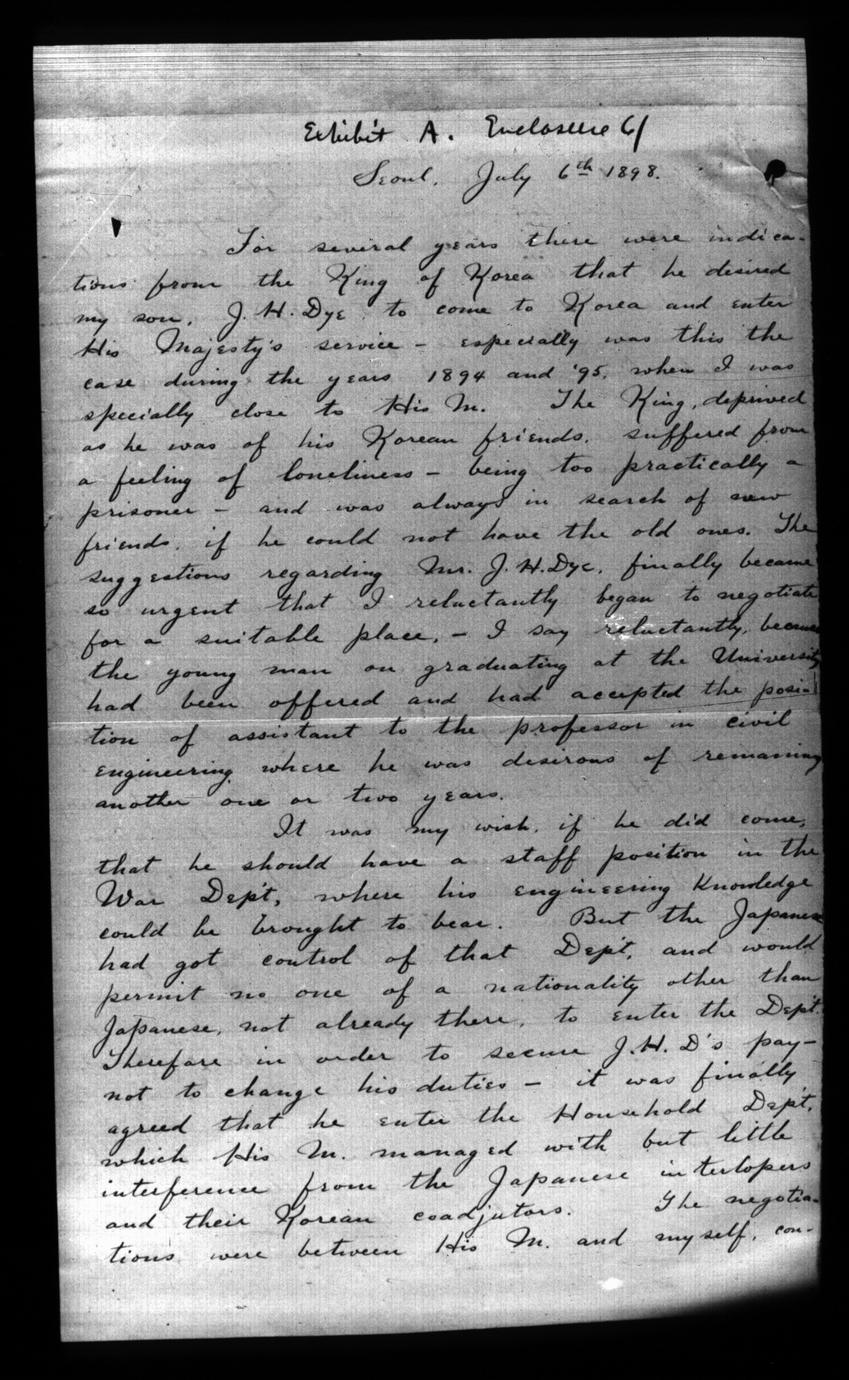 Exhibit A. Enclosure 6/
Seoul, July 6th 1898.
For several years there were indica-
tions from the King of Korea that he desired
my son, J. H. Dye to come to Korea and enter
His Majesty's service - especially was this the
case during the years 1894 and '95, when I was
specially close to His M. The King, deprived
as he was of his Korean friends, suffered from
a feeling of loneliness - being too practically a
prisoner - and was always in search of new
friends, if he could not have the old ones. The
suggestions regarding Mr. J. H. Dye, finally became
so urgent that I reluctantly began to negotiate
for a suitable place, - I say reluctantly, because
the young man on graduating at the University
had been offered and had accepted the posi-
tion of assistant to the professor in civil
engineering where he was desirous of remaining
another one or two years.
It was my wish, if he did come,
that he should have a staff position in the
War Dep't, where his engineering knowledge
could be brought to bear. But the Japanese
had got control of that Dep't, and would
permit no one of a nationality other than
Japanese, not already there, to enter the Dep't.
Therefore in order to secure J. H. D's pay -
not to change his duties - it was finally
agreed that he enter the Household Dep't,
which His M. managed with but little
interference from the Japanese interlopers
and their Korean coadjutors. The negotia-
tions were between His M. and myself, con-